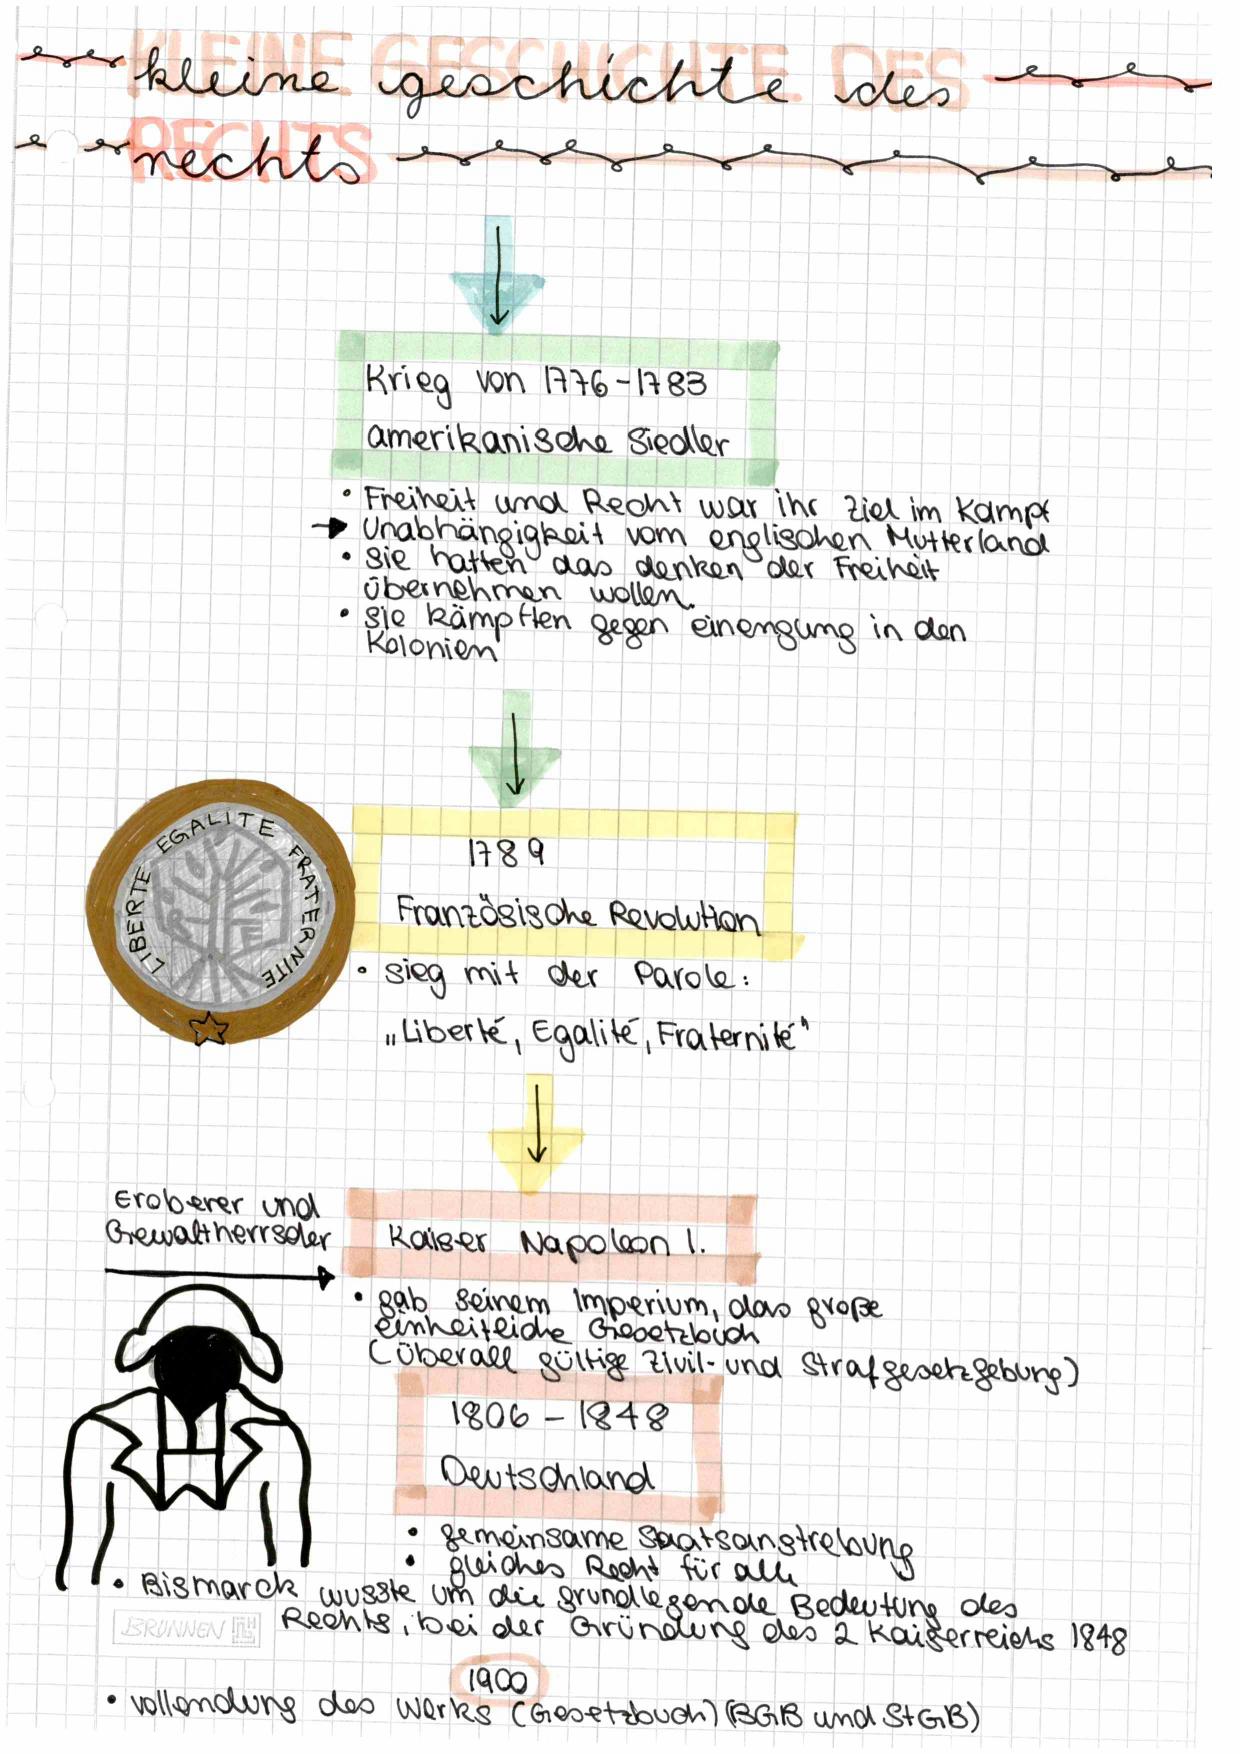 KLEINE GESCHICHTE DES
RECHTS
kleine geschichte des
rechts
Krieg von 1776-1783
amerikanische Siedler
• Freiheit und Recht war ihr Ziel im Kampf
→ Unabhängigkeit vom englischen Mutterland
• sie hatten das denken der Freiheit
übernehmen wollen.
• sie kämpften gegen einengung in den
Kolonien
LIBERTE EGALITE FRATERNITE
RF
1789
Französische Revolution
• sieg mit der Parole:
„Liberté, Egalité, Fraternité"
Eroberer und
Gewaltherrscher
Kaiser Napoleon I.
• gab seinem Imperium, das große
einheitliche Gesetzbuch
(überall gültige Zivil- und Strafgesetzgebung)
1806 - 1848
Deutschland
• gemeinsame Staatsanstrebung
• gleiches Recht für alle
• Bismarck wusste um die grundlegende Bedeutung des
Rechts, bei der Gründung des 2 Kaiserreichs 1848
BRUNNEN
1900
• vollendung des Werks (Gesetzbuch) (BGB und StGB)